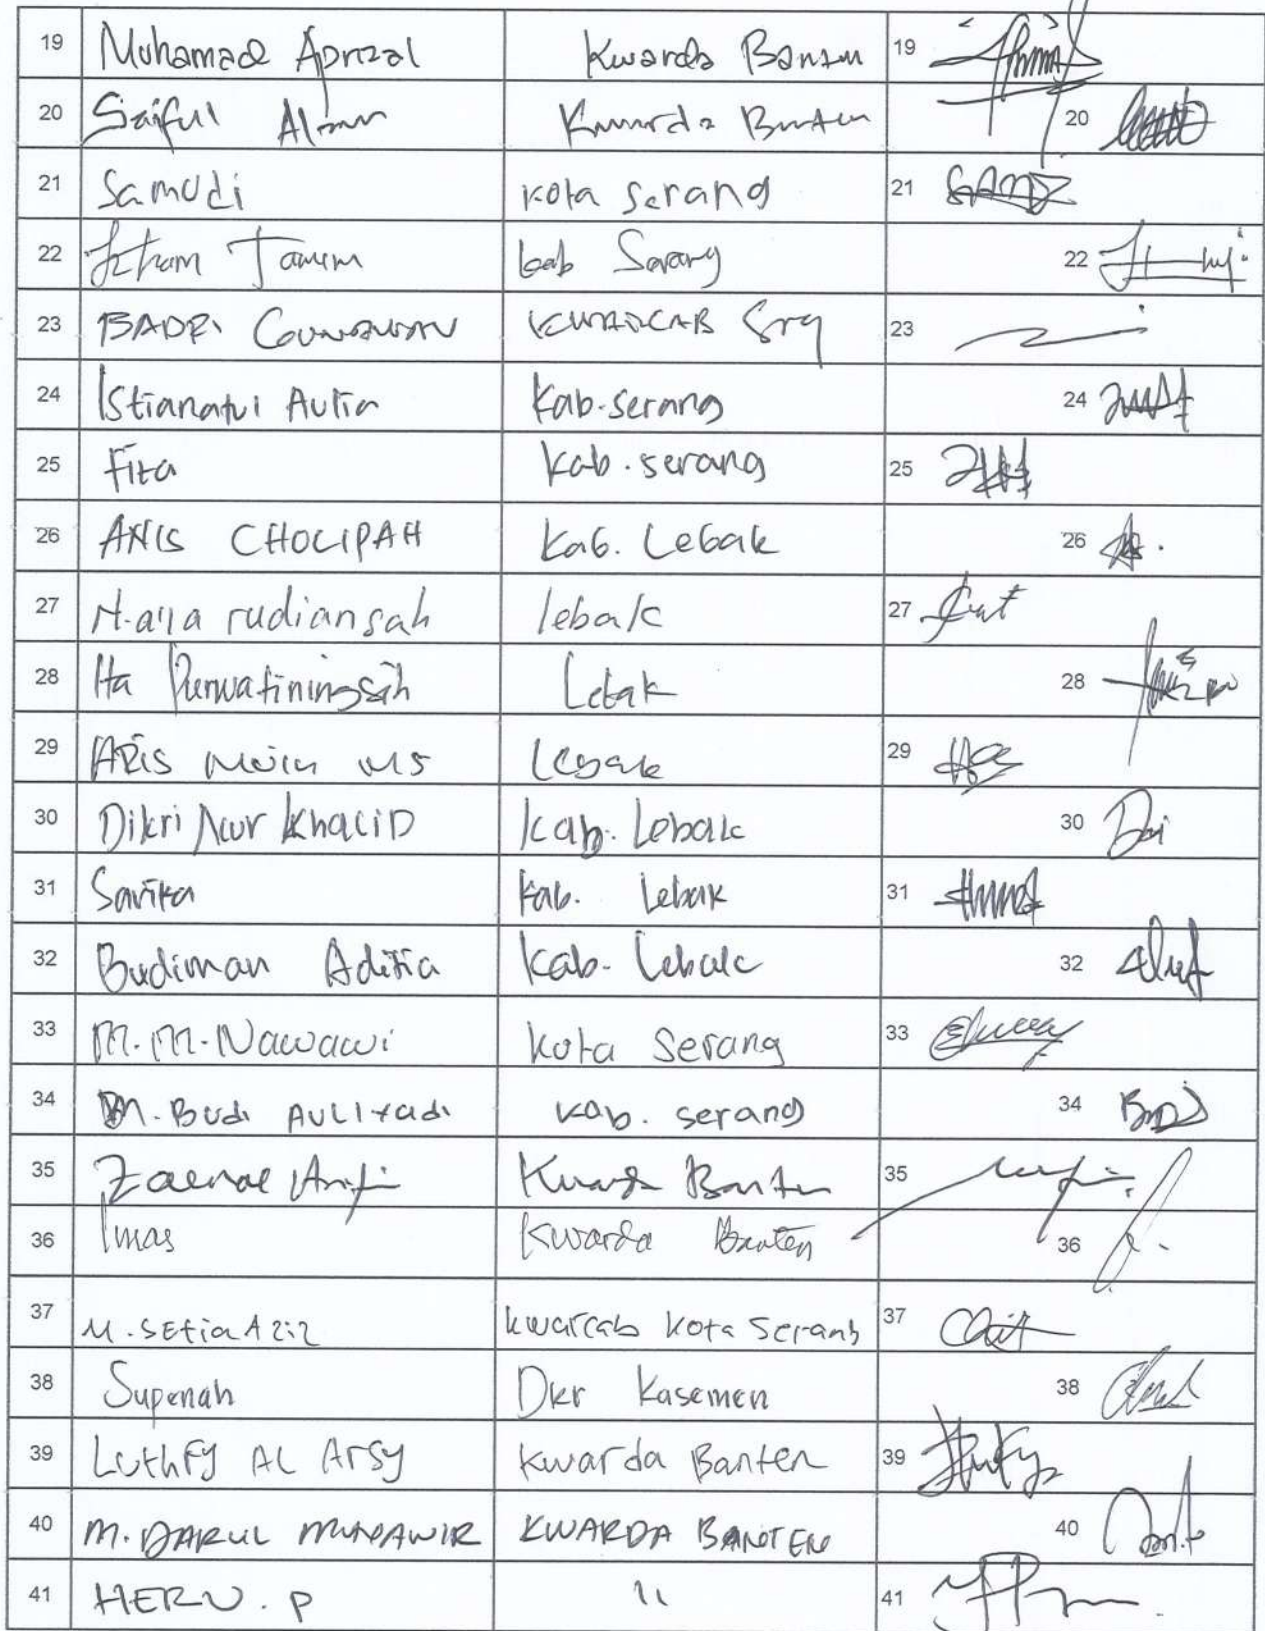 19 Muhamad Aprizal Kwarda Banten 19
20 Saiful Alam Kwarda Banten 20
21 Samudi Kota Serang 21
22 Tamim kab Serang 22
23 BADRI KWARCAB Srg 23
24 Istianatul Aulia Kab. serang 24
25 Fita Kab. serang 25
26 ANIS CHOLIPAH Kab. Lebak 26
27 rudiansah lebak 27
28 Ita Purwatiningsih Lebak 28
29 ARIS Lebak 29
30 Dikri Nur KhaliD Kab. Lebak 30
31 Savika Kab. Lebak 31
32 Budiman Aditia Kab. Lebak 32
33 M. M. Nawawi Kota Serang 33
34 M. Budi AULiyadi Kab. serang 34
35 Zaenal Arifin Kwarda Banten 35
36 Imas Kwarda Banten 36
37 M. SEtia Aziz kwarcab Kota Serang 37
38 Supenah Dkr Kasemen 38
39 Luthfy AL Arsy Kwarda Banten 39
40 M. DARUL MUNAWIR KWARDA BANTEN 40
41 HERU. P 11 41